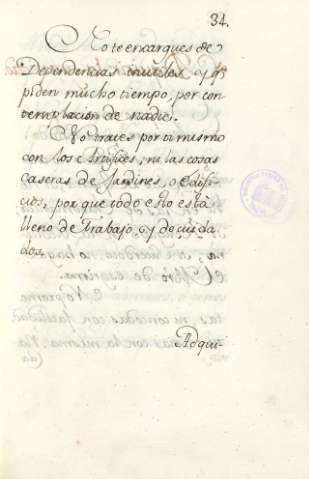 34.
No te encargues de
Dependencias inutiles y q̃
piden mucho tiempo, por con
templacion de nadie.
No trates por ti mismo
con los Artifices, ni las cosas
caseras de Jardines, o edifi
cios, por que todo esto està
lleno de Trabajo, y de cuida
dos.
Adqui-